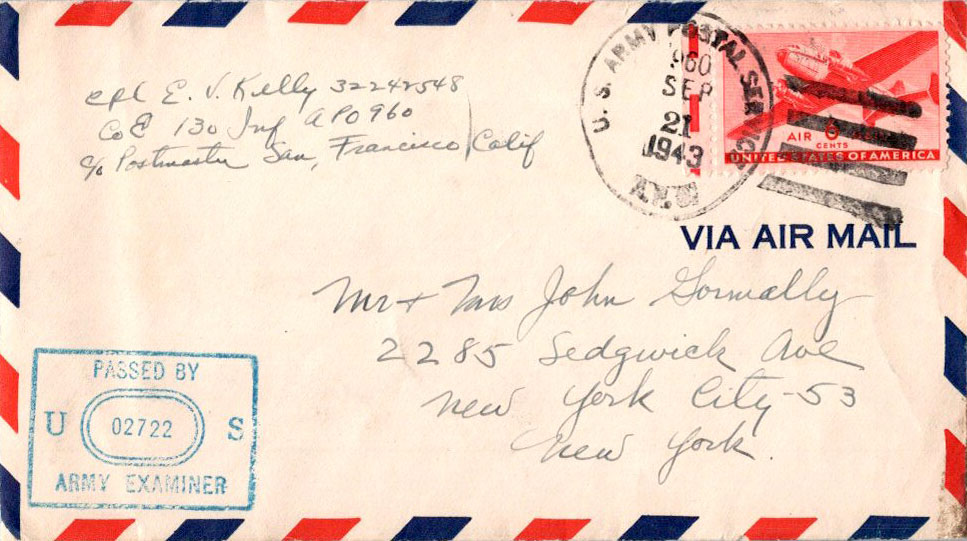 cpl E. V. Kelly 32242548
Co E 130 Inf APO 960
c/o Postmaster San, Francisco, Calif
U. S. ARMY POSTAL SERVICE
960
SEP
21
1943
AIR 6
CENTS
UNITED STATES OF AMERICA
VIA AIR MAIL
Mr + Mrs John Gormally
2285 Sedgwick Ave
New York City-53
New York.
PASSED BY
U 02722 S
ARMY EXAMINER